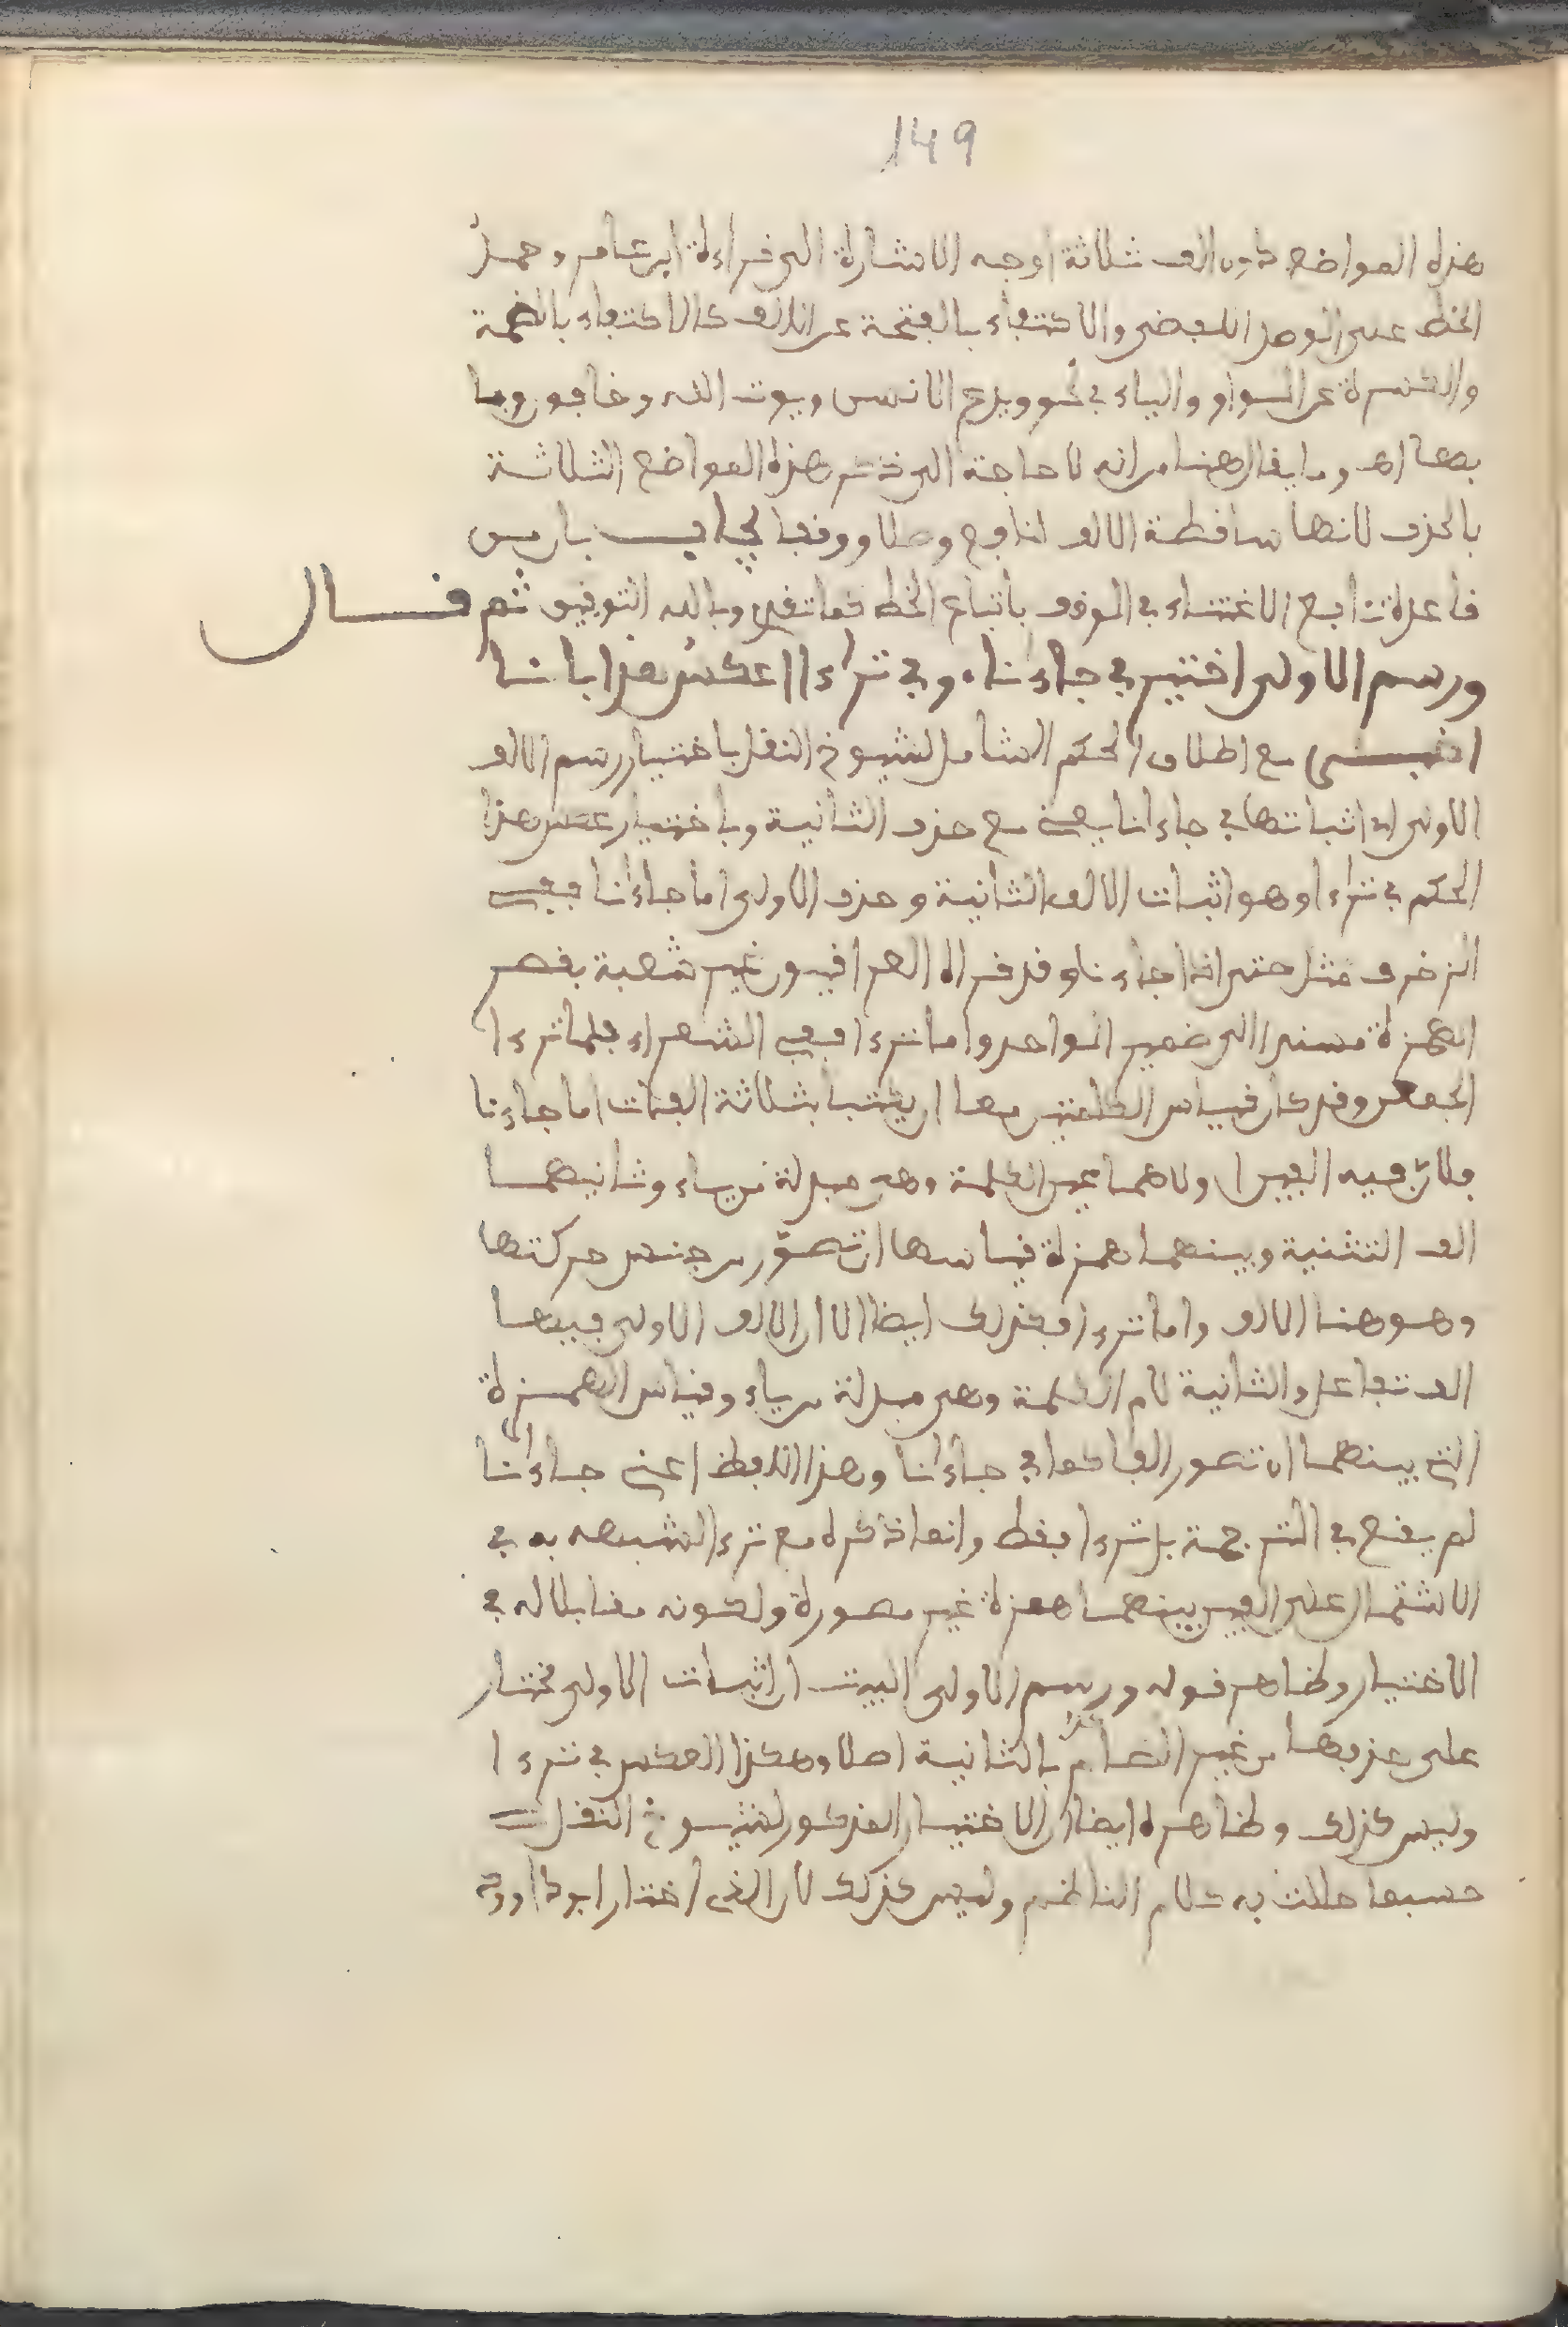 149
هذه المواضع دون الف ثلاثة اوجه الاشارة الى قراءة ابن عامر وحمل
الخط على الوصل اللفظي والاكتفاء بالفتحة عن الالف كالاكتفاء بالضمة
والكسرة عن الواو والياء في نحو ويدع الانسن ويوت الله وخافون وما
بها اهـ وما يقال هنا من انه لا حاجة الى ذكر هذه المواضع الثلاثة
بالحذف لانها ساقطة الالف لنافع وصلا ووقفا يجاب بان من
قاعدة نافع الاعتناء في الوقف باتباع الخط كما تقدم وبالله التوفيق ثم قال
ورسم الاولى اختير في جاءنا وفي تراءا عكس هذا بانا
اخبر مع اطلاق الحكم الشامل لشيوخ النقل باختيار رسم الالف
الاولى اي اثباتها في جاءانا يعني مع حذف الثانية وباختيار عكس هذا
الحكم في تراءا وهو اثبات الالف الثانية وحذف الاولى اما جاءنا ففي
الزخرف مثل حتى اذا جاءنا وقد قراه العراقيون غير شعبة بقصر
الهمزة مسندا الى ضمير الواحد واما ترءا ففي الشعراء فلما ترءا
الجمعن وقد كان قياس الكلمتين معا ان يكتبا بثلاثة الفات اما جاءنا
فلان فيه الفين اولاهما عين الكلمة وهي مبدلة من ياء وثانيهما
الف التثنية وبينهما همزة قياسها ان تصور من جنس حركتها
وهو هنا الالف واما ترءا فكذلك ايضا الا ان الالف الاولى فيها
الف تفاعل والثانية لام الكلمة وهي مبدلة من ياء وقياس الهمزة
التي بينهما ان تصور الفا كما في جاءنا وهذا اللفظ اعني جاءنا
لم يقع في الترجمة بل ترءا فقط وانما ذكره مع ترءا لشبهه به في
الاشتمال على الفين بينهما همزة غير مصورة ولكونه مقابلا له في
الاختيار وظاهر قوله ورسم الاولى البيت ان اثبات الاولى مختار
على حذفها من غير الـمام بالثانية اصلا وهكذا العكس في ترءا
وليس كذلك وظاهره ايضا ان الاختيار المذكور لشيوخ النقل
حسبما حللت به كلام الناظم وليس كذلك لان الذي اختار ابو داوود